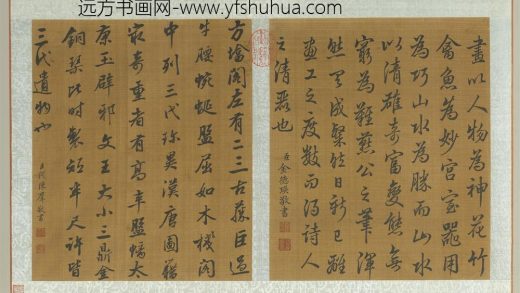 远方书画网- www.yfshuhua.com
畫以人物為神花竹
禽魚為妙宮室器用
為巧山水為勝而山水
以清雄奇富變態無
窮為難燕公之筆渾
然天成粲然日新已離
畫工之度數而得詩人
之清麗也
臣金德瑛敬書
方塘閣左有二三古藤巨過
牛腰蜿蜒盤屈如木棧閣
中列三代珍異漢唐圖籍
最奇重者有高辛盤螭太
康玉辟邪文王大小三鼎金
銅槃比時製短半尺許皆
三代遺物也
陳羣敬書